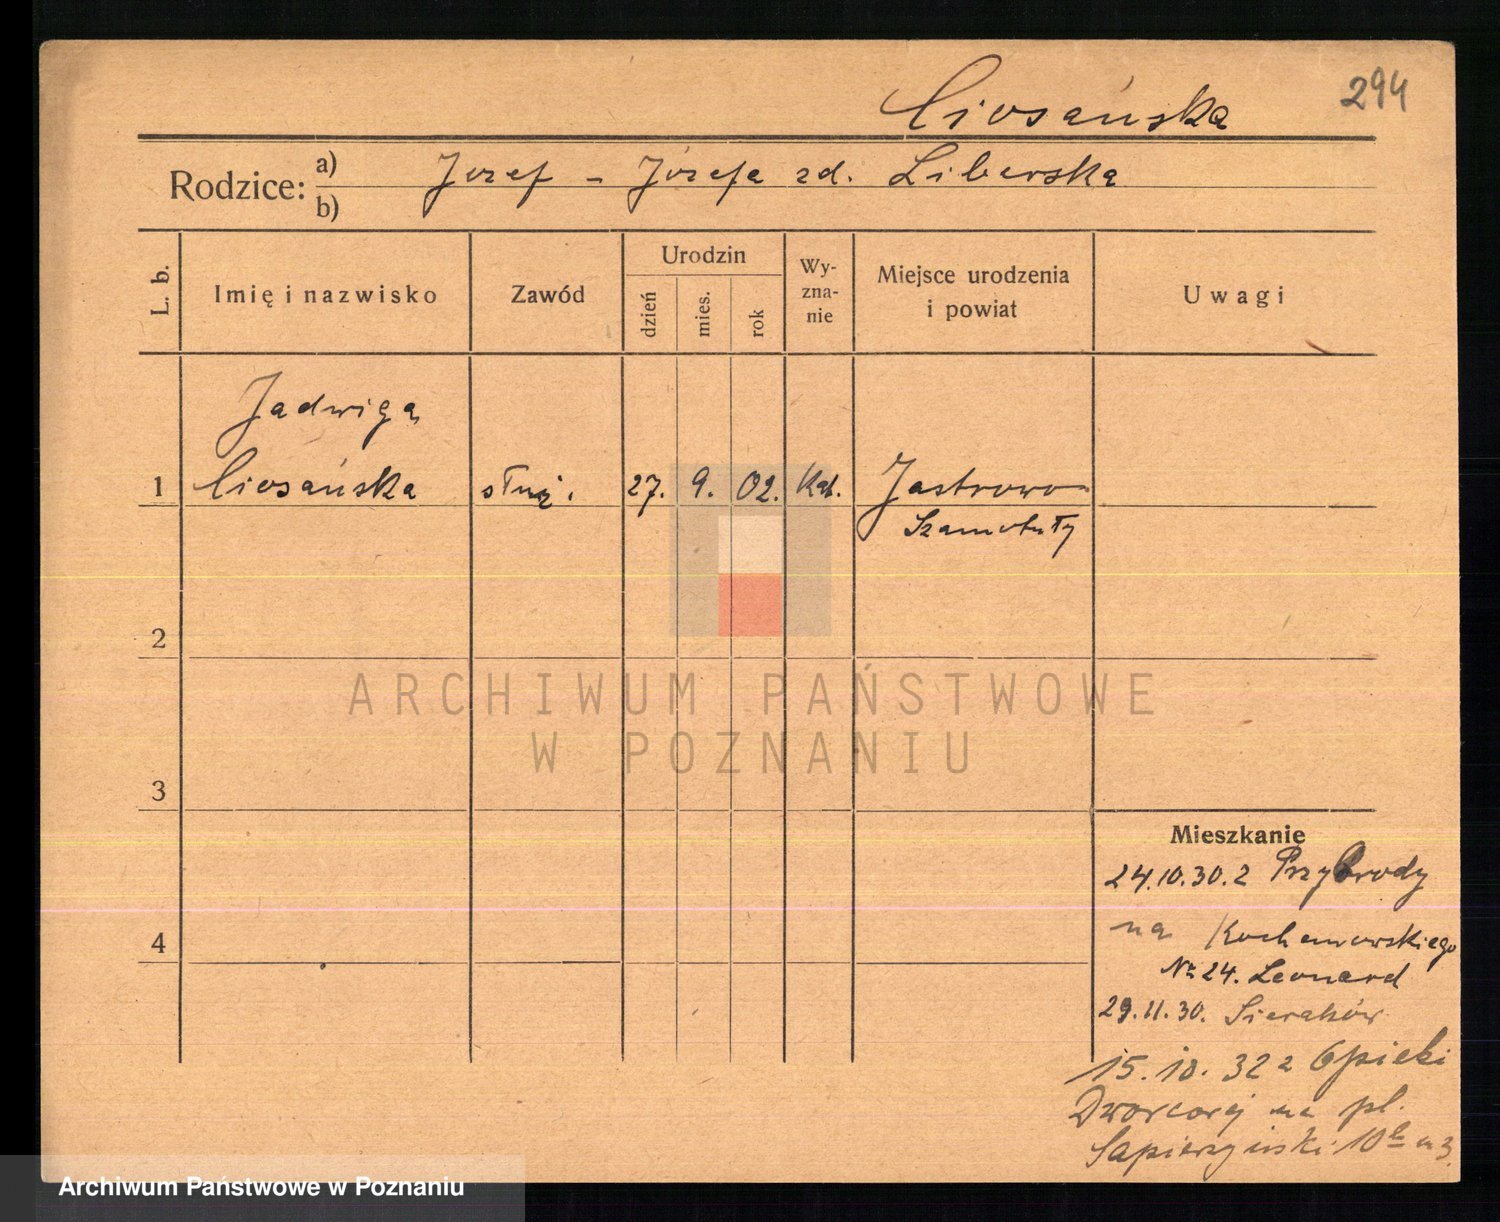 294
Ciosańska
Rodzice: a) b) Józef - Józefa zd. Liberska
L. b.
Imię i nazwisko
Zawód
Urodzin
dzień
mies.
rok
Wy-
zna-
nie
Miejsce urodzenia
i powiat
Uwagi
Jadwiga
1 Ciosańska służ. 27. 9. 02. Kat. Jastrowo
Szamotuły
2
ARCHIWUM PAŃSTWOWE
W POZNANIU
3
Mieszkanie
24.10.30. z Przybrody
na Kochanowskiego
4
Nr 24. Leonard
29.11.30. Sieraków
15.10.32 z Opieki
Dworcowej na pl.
Sapieżyński 10a m 3.
Archiwum Państwowe w Poznaniu